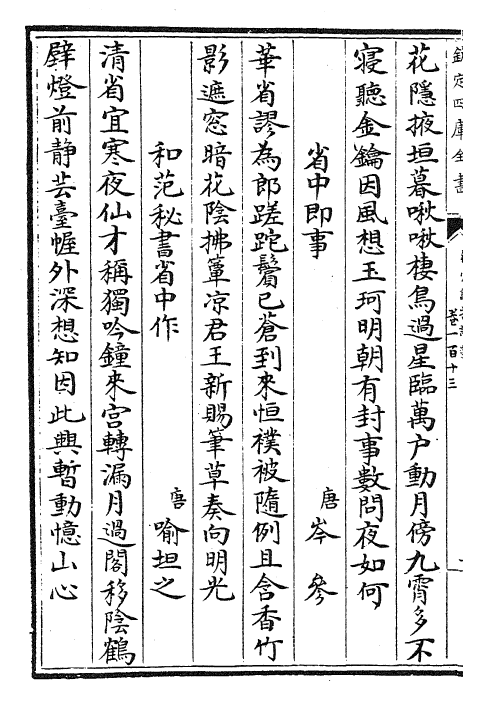 欽定四庫全書
卷一百十三
花隱掖垣暮啾啾棲鳥過星臨萬户動月傍九霄多不
寝聽金鑰因風想玉珂明朝有封事數問夜如何
省中即事 唐 岑參
華省謬為郎蹉跎鬢已蒼到來恒襆被隨例且含香竹
影遮窓暗花陰拂簟凉君王新賜筆草奏向明光
和范秘書省中作 唐 喻坦之
清省宜寒夜仙才稱獨吟鐘來宫轉漏月過閣移陰鶴
辟燈前静芸臺幄外深想知因此興暫動憶山心